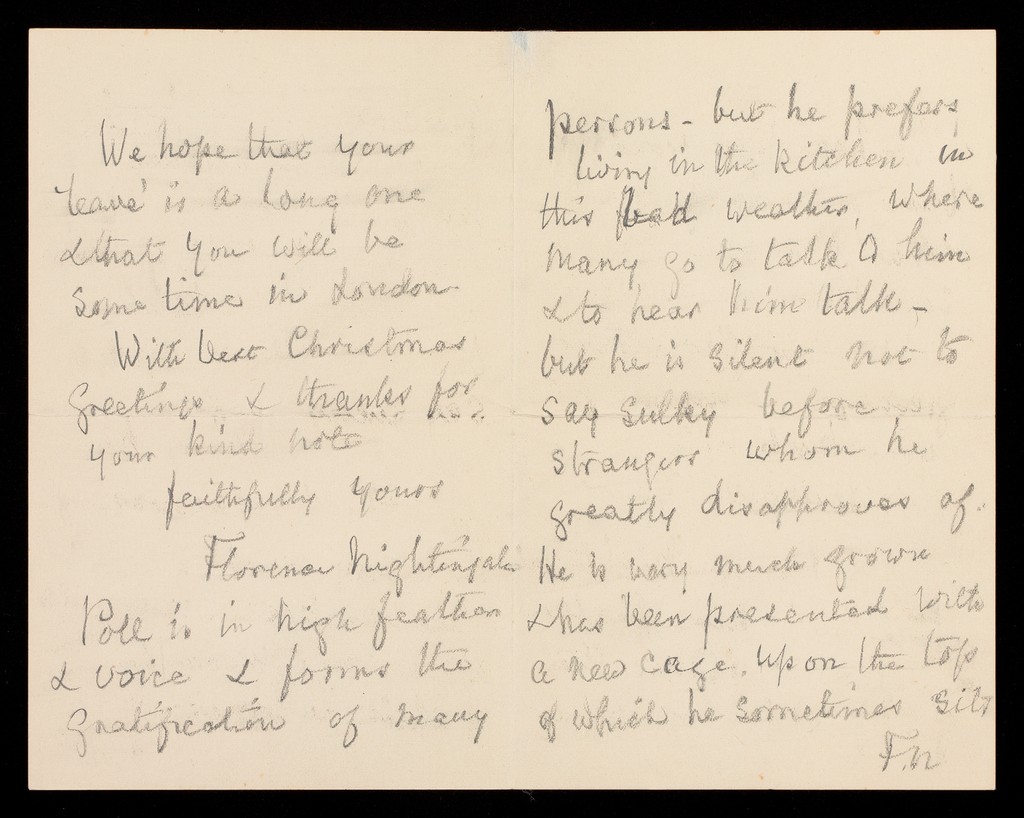 We hope that your
'leave' is a long one
& that you will be
some time in London
With best Christmas
greetings & thanks for
your kind note
faithfully yours
Florence Nightingale
Poll is in high feather
& voice & forms the
gratification of many
persons - but he prefers
living in the kitchen in
this bad weather, where
many go to talk to him
& to hear him talk -
but he is silent not to
say sulky before
strangers whom he
greatly disapproves of.
He is very much grown
& has been presented with
a new cage, upon the top
of which he sometimes sits
F.N